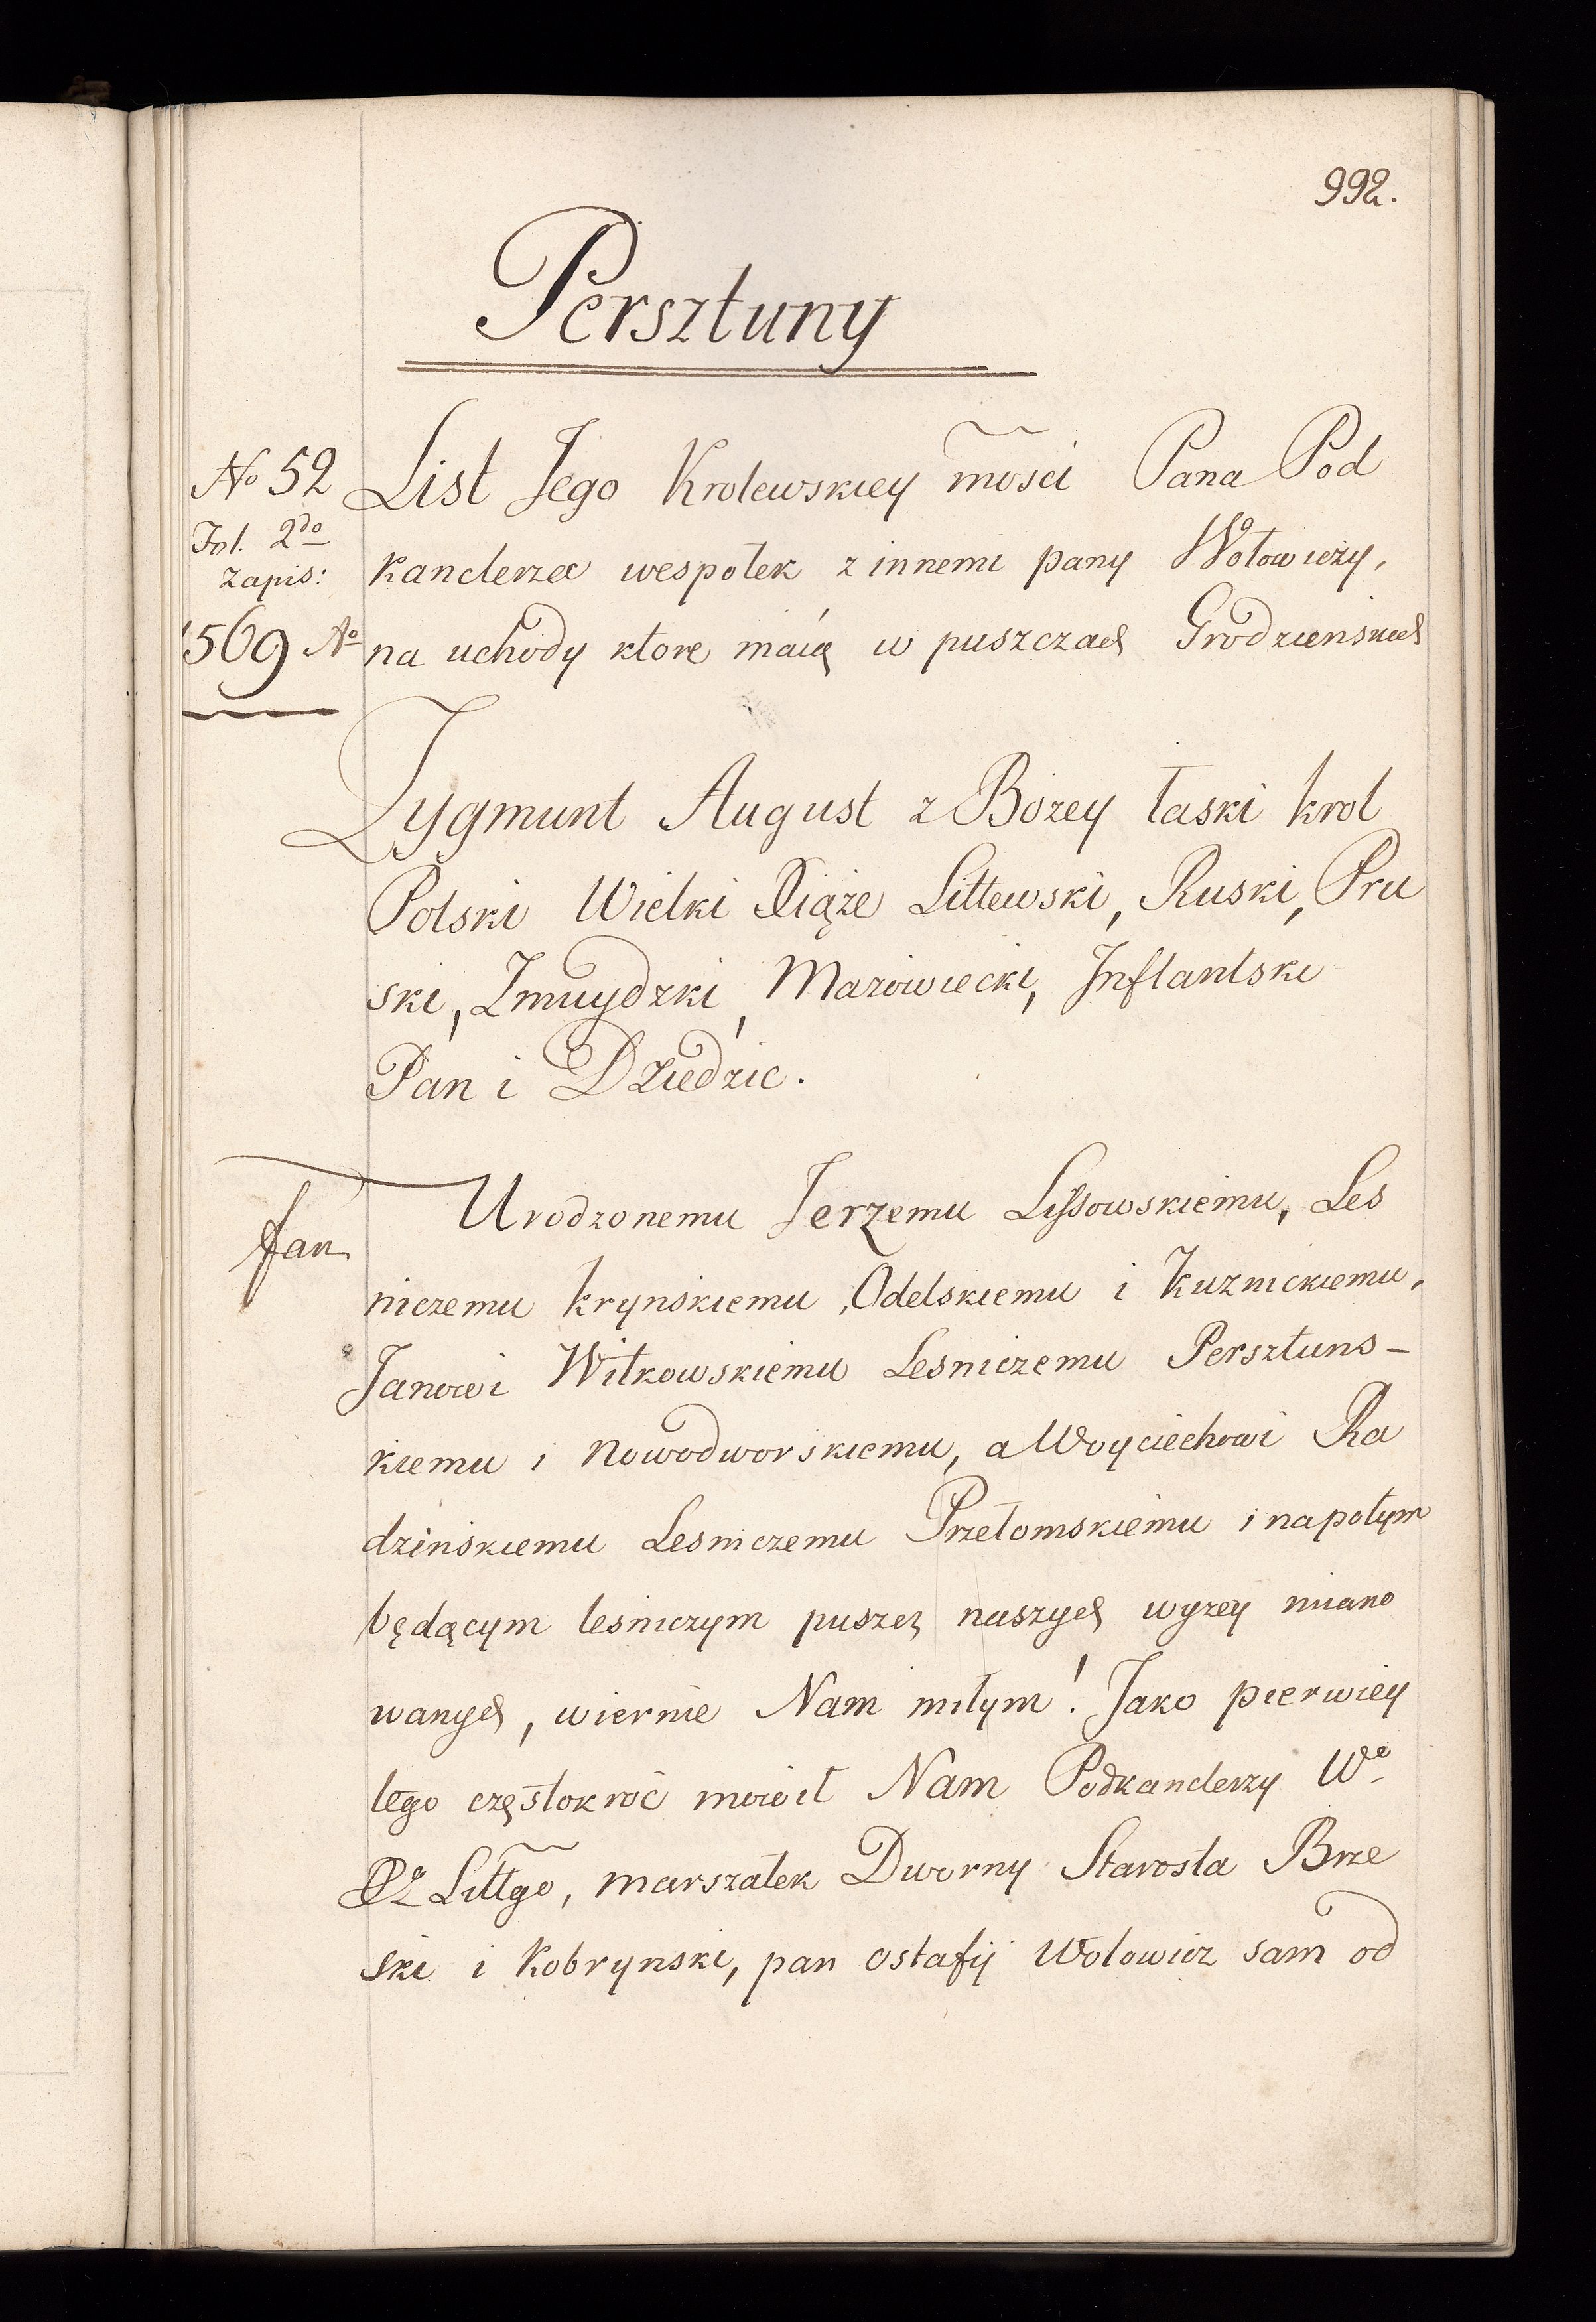 992.
Persztuny
No 52
Fol. 2do
zapis:
1569 Ao
List Jego Krolewskiey mosci Pana Pod
kanclerza wespołek z innemi pany Wołowiczy,
na uchody ktore maią w puszczach Grodzienskich
Zygmunt August z Bożey łaski krol
Polski Wielki Xiąże Littewski, Ruski, Pru
ski, Zmuydzki, Mazowiecki, Inflantski
Pan i Dziedzic.
Urodzonemu Jerzemu Lissowskiemu, Les
niczemu krynskiemu, Odelskiemu i Kuznickiemu,
Janowi Wilkowskiemu Lesniczemu Persztuns-
kiemu i Nowodworskiemu, a Woyciechowi Ra
dzinskiemu Lesniczemu Przełomskiemu i napotym
będącym lesniczym puszcz naszych wyzey miano
wanych, wiernie Nam miłym! Jako pierwiey
tego częstokroć mowił Nam Podkanclerzy We
Xa Littgo, marszałek Dworny Starosta Brze
ski i Kobrynski, pan Ostafij Wołowicz sam od